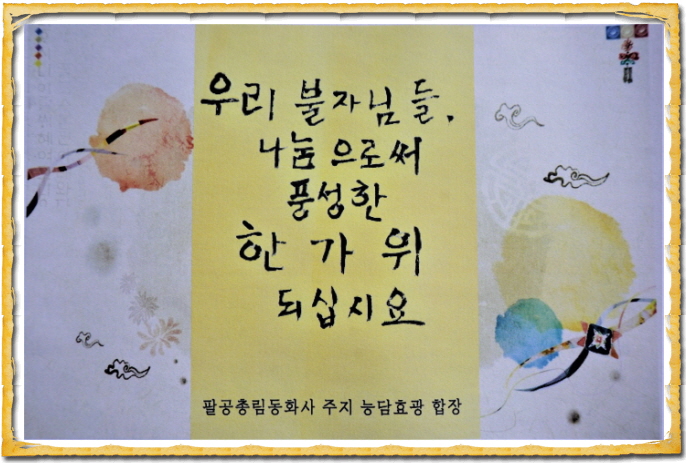 우리 불자님들,
나눔으로써
풍성한
한가위
되십시요
팔공총림동화사 주지 능담효광 합장